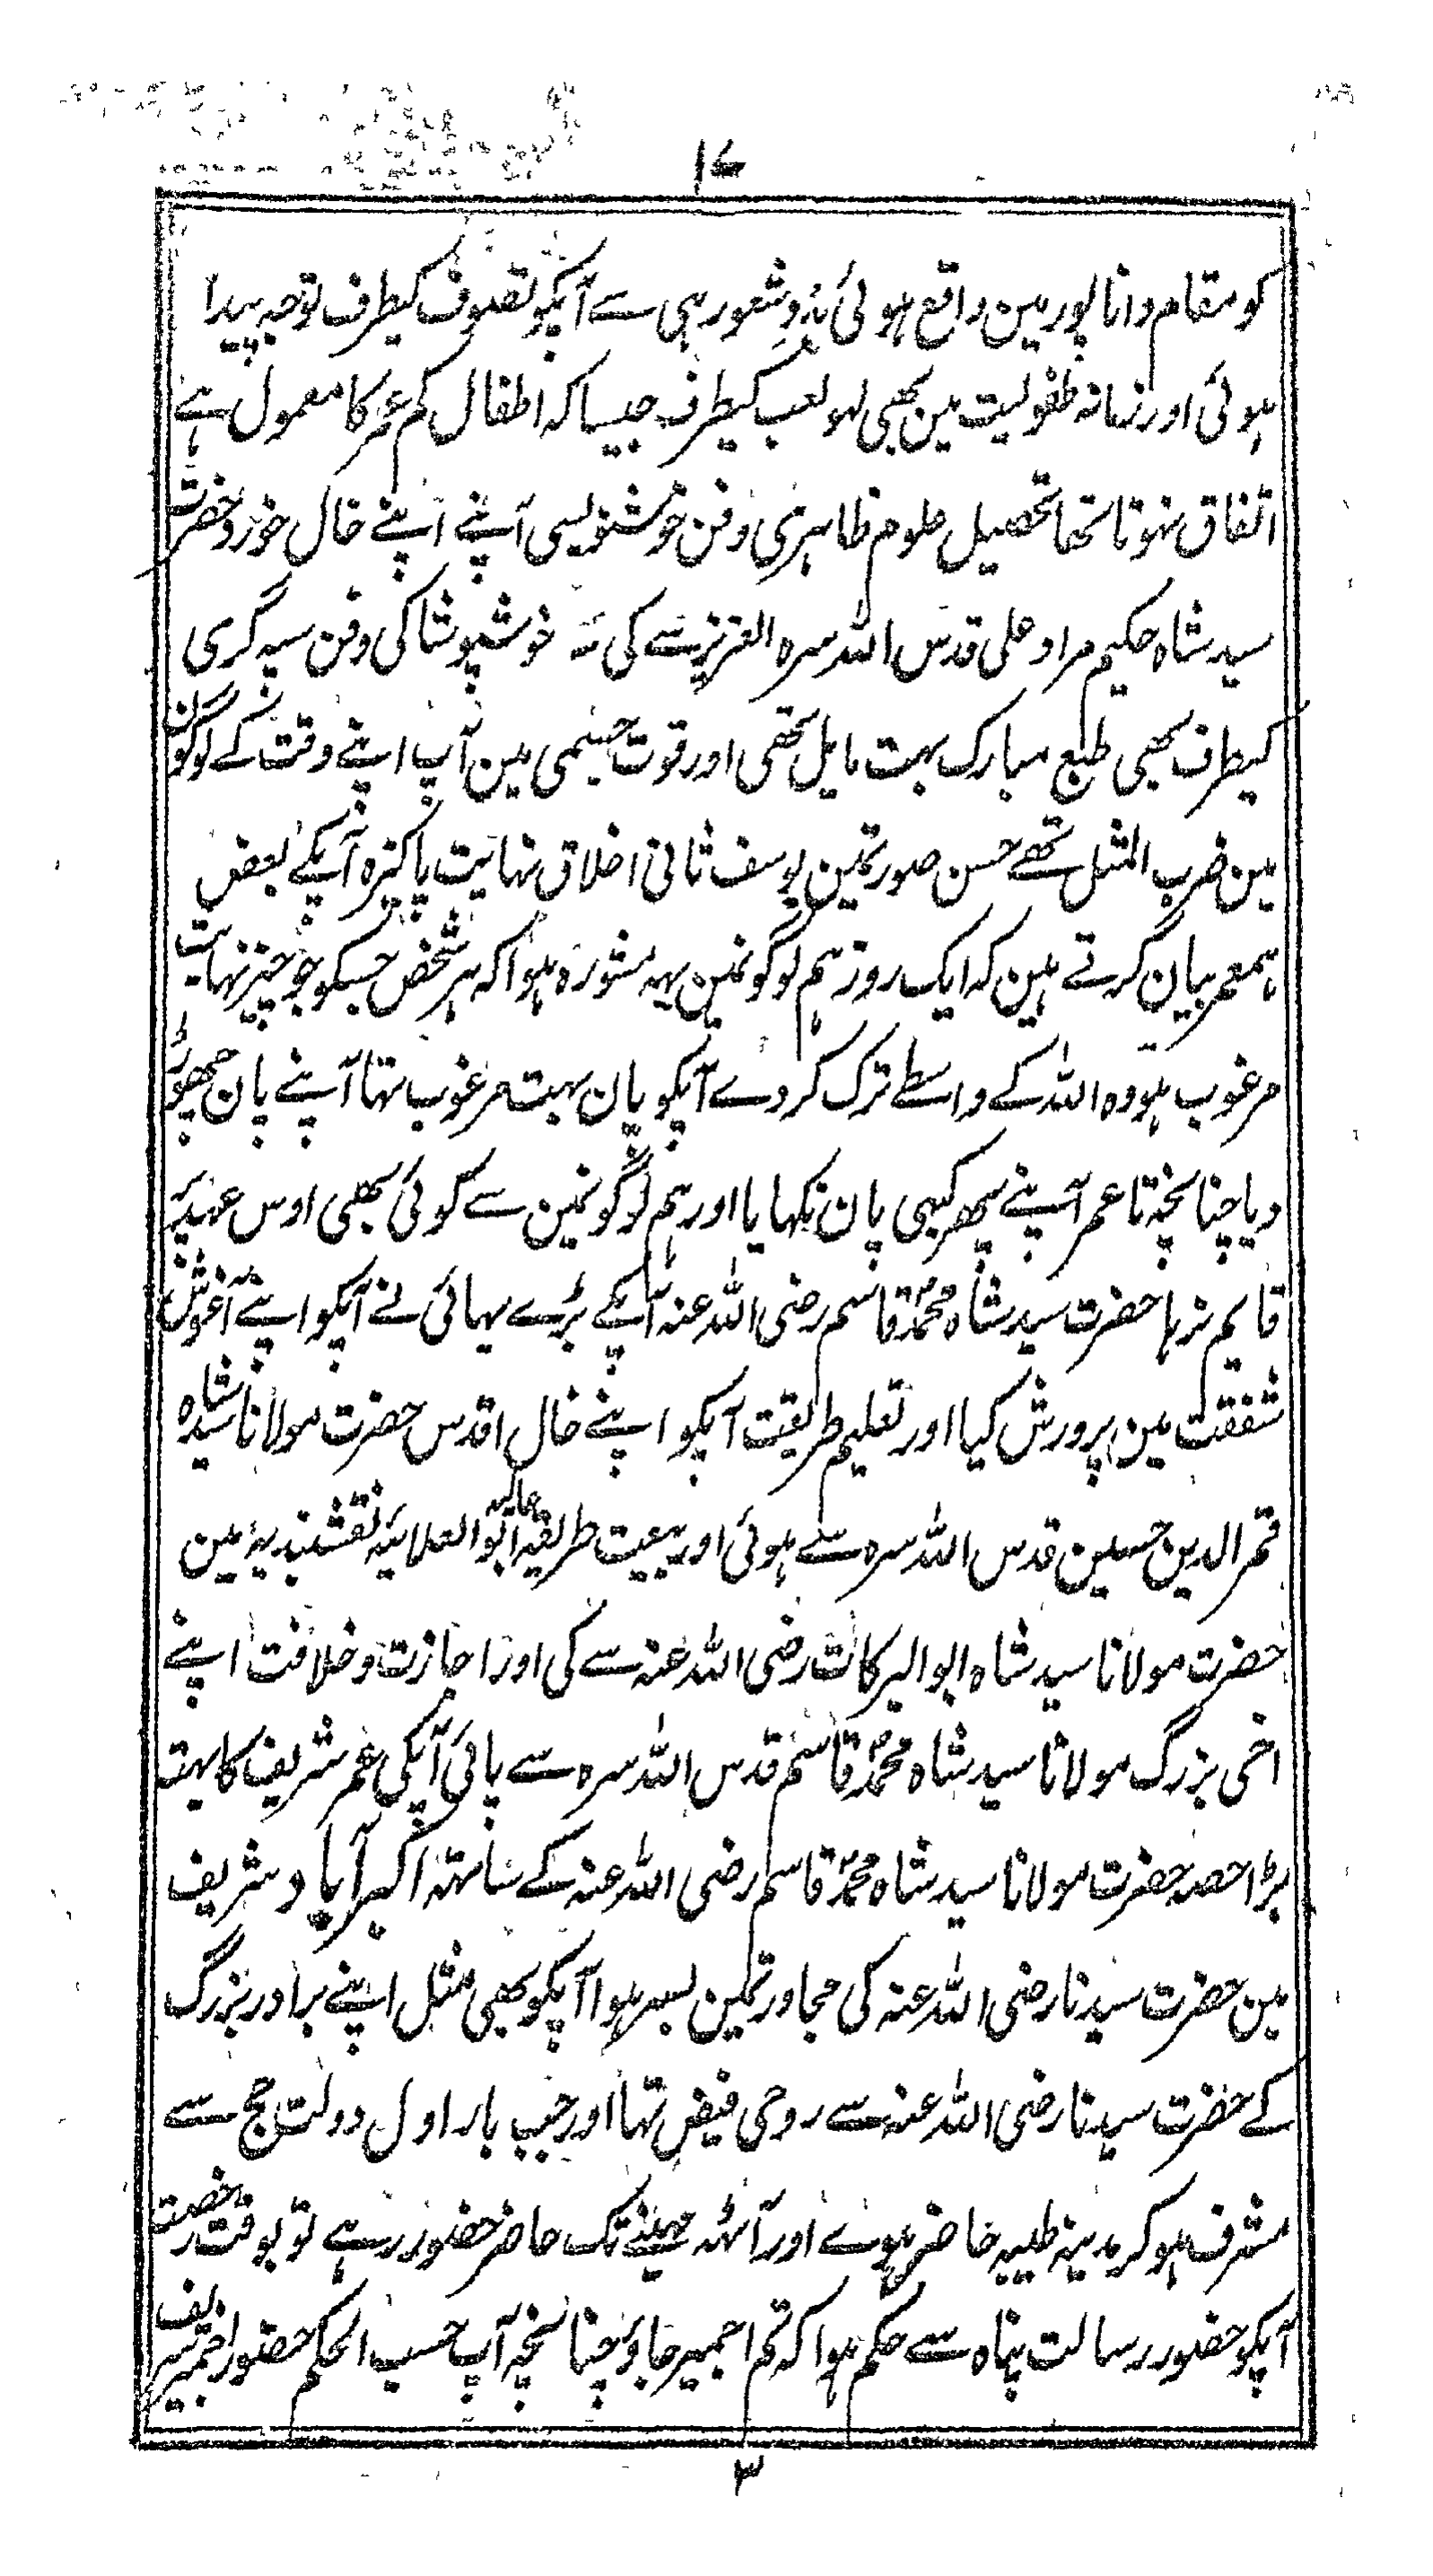 ۱۷
کو مقام دانا پور مین واقع ہوئی بدو شعور ہی سے آپکو تصوف کیطرف توجہ پیدا
ہوئی اور زمانہ طفولیت مین بھی لہو لعب کیطرف جیسا کہ اطفال کم عمر کا معمول ہے
اتفاق نہوتا تھا تحصیل علوم ظاہری و فن خوشنویسی آپنے اپنے خال خورد حضرت
سید شاہ حکیم مراد علی قدس اللہ سرہ العزیز سے کی خوشپوشاکی و فن سپہ گری
کیطرف بھی طبع مبارک بہت مایل تھی اور قوت جسمی مین آپ اپنے وقت کے لوگون
مین ضرب المثل تھے حسن صورتمین یوسف ثانی اخلاق نہایت پاکیزہ آپکے بعض
ہمعمر بیان کرتے ہین کہ ایک روز ہم لوگونمین یہہ مشورہ ہوا کہ ہر شخص جسکو جو چیز نہایت
مرغوب ہو وہ اللہ کے واسطے ترک کر دے آپکو پان بہت مرغوب تہا آپنے پان چھوڑ
دیا چنانچہ تا عمر آپنے پھر کبھی پان نکہایا اور ہم لوگونمین سے کوئی بھی اوس عہد پر
قایم نرہا حضرت سید شاہ محمد قاسم رضی اللہ عنہ آپکے بڑے بہائی نے آپکو اپنے آغوش
شفقت مین پرورش کیا اور تعلیم طریقت آپکو اپنے خال اقدس حضرت مولانا سید شاہ
قمر الدین حسین قدس اللہ سرہ سے ہوئی اور بیعت طریقہ عالیہ ابو العلائیہ نقشبندیہ مین
حضرت مولانا سید شاہ ابو البرکات رضی اللہ عنہ سے کی اور اجازت و خلافت اپنے
اخی بزرگ مولانا سید شاہ محمد قاسم قدس اللہ سرہ سے پائی آپکی عمر شریف کا بہت
بڑا حصہ حضرت مولانا سید شاہ محمد قاسم رضی اللہ عنہ کے ساتہہ اکبرآباد شریف
مین حضرت سیدنا رضی اللہ عنہ کی مجاورتمین بسر ہوا آپکو بھی مثل اپنے برادر بزرگ
کے حضرت سیدنا رضی اللہ عنہ سے روحی فیض تہا اور جب بار اول دولت حج سے
مشرف ہو کر مدینہ طیبہ حاضر ہوے اور آٹہہ مہینے تک حاضر حضور رہے تو بوقت رخصت
آپکو حضور رسالت پناہ سے حکم ہوا کہ تم اجمیر جاؤ چنانچہ آپ حسب الحکم حضور اجمیر شریف
۳